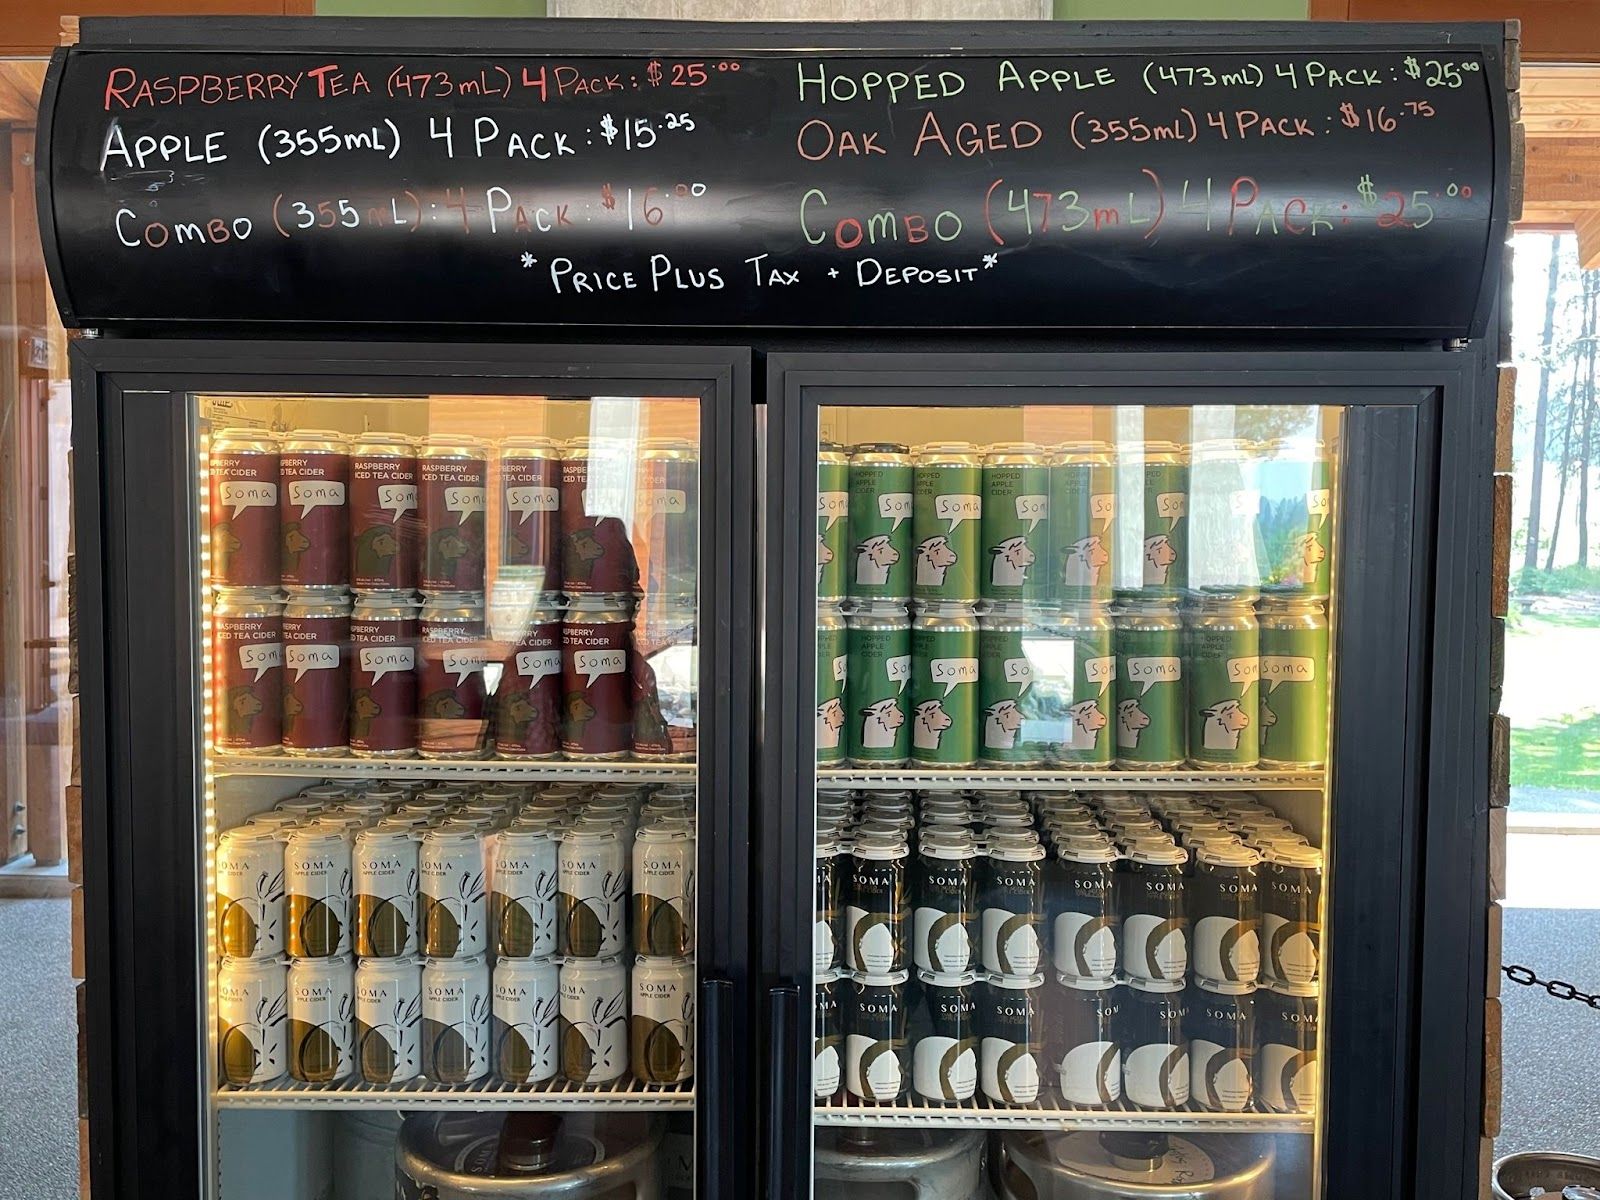 RASPBERRY TEA (473mL) 4 PACK: $25.00
APPLE (355mL) 4 PACK: $15.25
COMBO (355mL): 4 PACK: $16.00
HOPPED APPLE (473mL) 4 PACK: $25.00
OAK AGED (355mL) 4 PACK: $16.75
COMBO (473mL) 4 PACK: $25.00
*PRICE PLUS TAX + DEPOSIT*
RASPBERRY
ICED TEA CIDER
soma
HOPPED
APPLE
CIDER
soma
SOMA
APPLE CIDER
SOMA